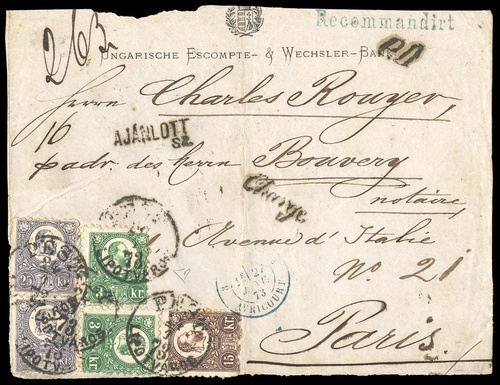 263
Recommandirt
UNGARISCHE ESCOMPTE- & WECHSLER-BANK
PD
Herrn Charles Rouger,
16
AJÁNLOTT
SZ.
p adr. des Herrn Bouvery
Chargé
notaire,
Avenue d'Italie
No. 21
Paris.
AVRICOURT
73
PEST
25 Kr
3 Kr
3 Kr
15 Kr